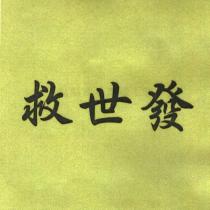 救世發